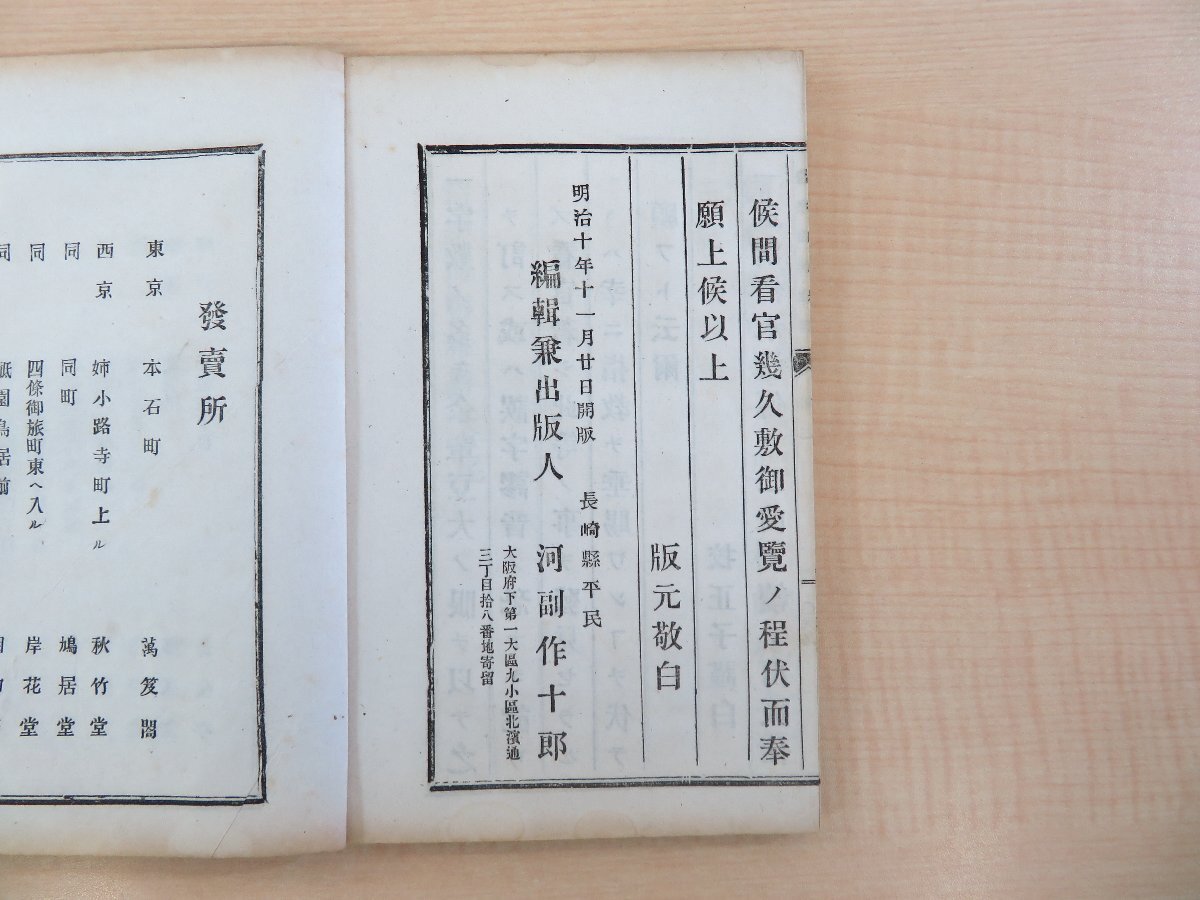 候間看官幾久敷御愛覽ノ程伏而奉
願上候以上
版元敬白
明治十年十一月廿日開版
編輯兼出版人
長崎縣平民
河副作十郎
大阪府下第一大區九小區北濱通
三丁目拾八番地寄留
發賣所
東京 本石町 萬笈閣
西京 姉小路寺町上ル 秋竹堂
同 同町 鳩居堂
同 四條御旅町東ヘ入ル 岸花堂
同 祇園鳥居前